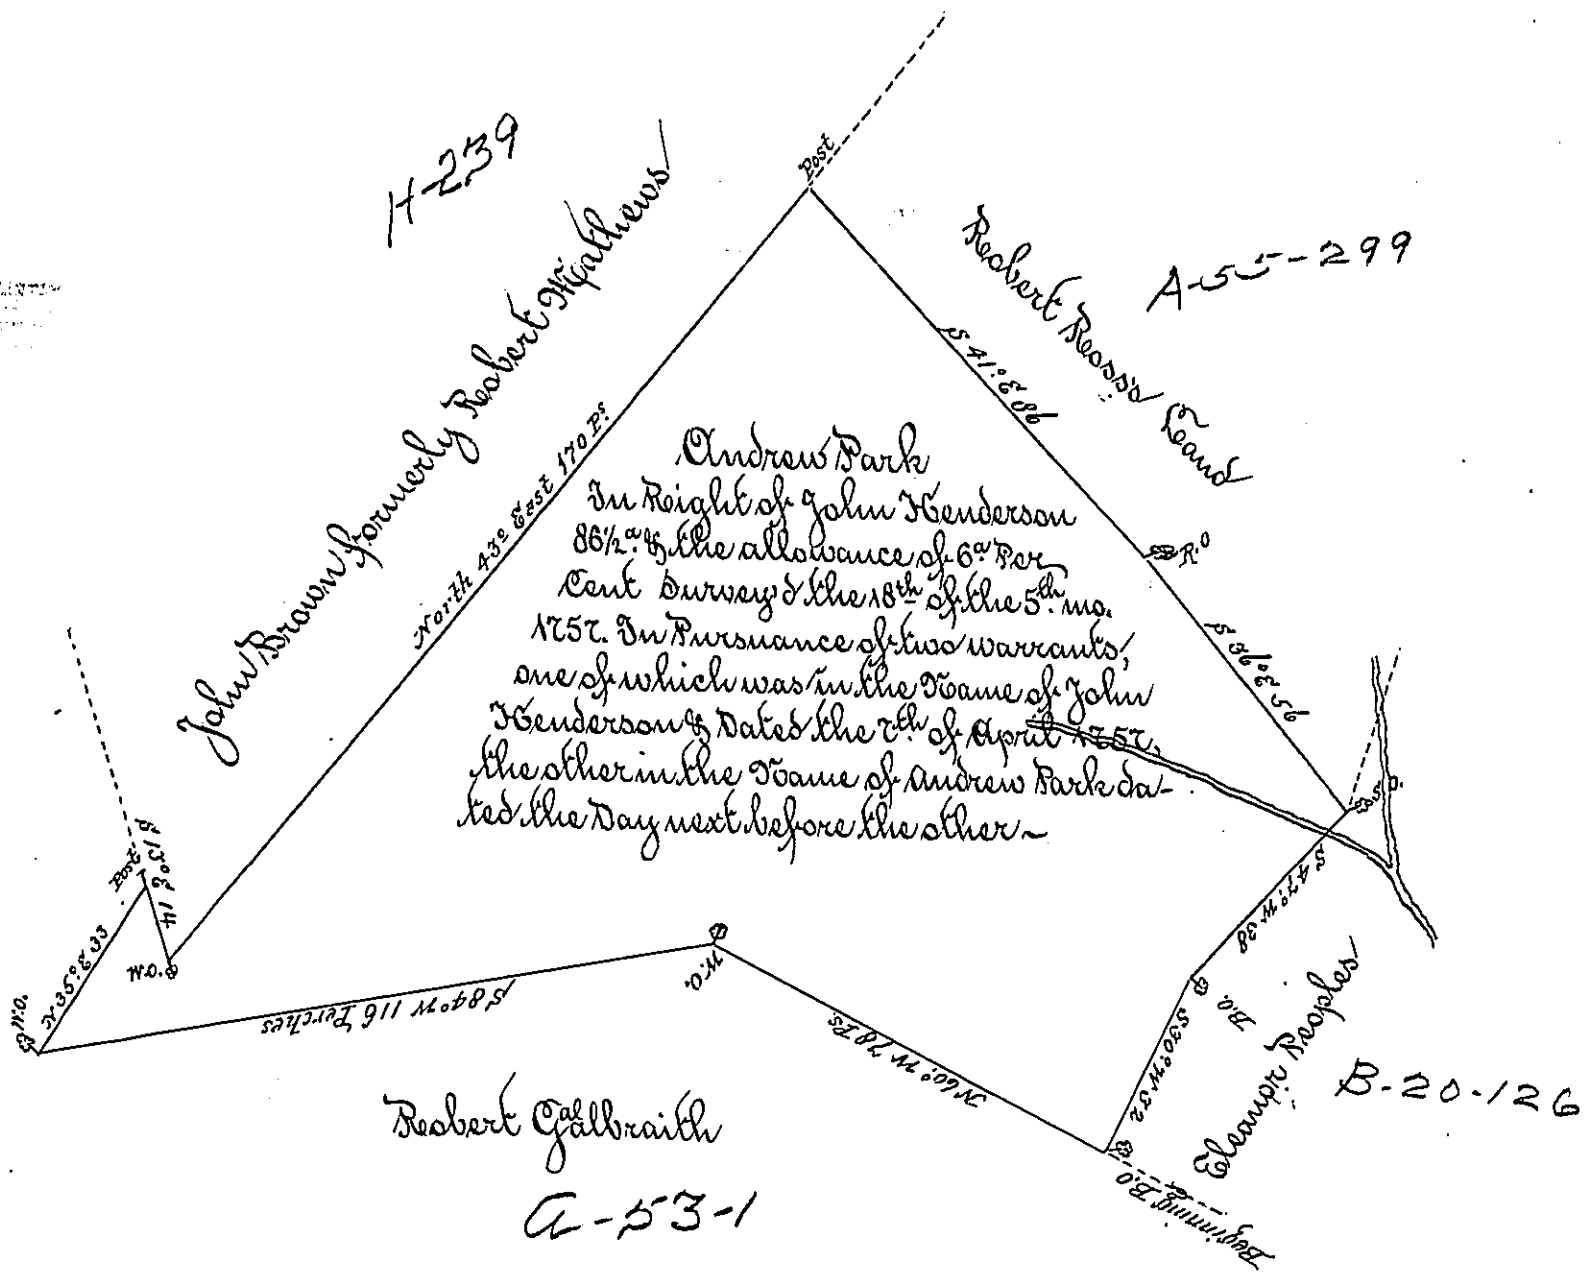 H-239
Post
A-55-299
Robert Ross's Land
John Brown formerly Robert Mathews
North 43° East 170 Ps.
S 41° E 86
R.O
S 36° E 56
S.O.
Andrew Park
In Right of John Henderson
86½ a. & the allowance of 6 a Per
Cent Survey'd the 18th of the 5th mo.
1757. In Pursuance of two warrants,
one of which was in the Name of John
Henderson & Dated the 7th of April 1757,
the other in the Name of Andrew Park da-
ted the Day next before the other ~
Post
S 13° E 14
W.O.
N 35° E 33
W.O.
S 84° W 116 Perches
W.O.
N 60° W 78 Ps.
S 47° W 38
B.O.
S 30° W 32
Beginning B.O
Eleanor Peoples
B-20-126
Robert Galbraith
A-53-1